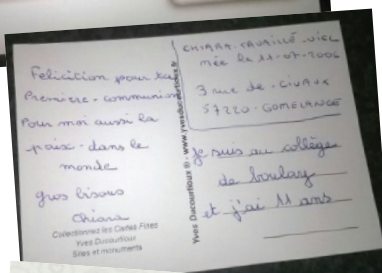 Felicition pour ta
Première-communion
Pour moi aussi la
paix-dans le
monde
gros bisous
Chiara
Collectionnez les Cartes Fines
Yves Ducourtioux
Sites et monuments
Yves Ducourtioux © - www.yvesducourtioux.fr
CHIARA-CAVAILLÉ-VIEL
née le 11-07-2006
3 rue de-CIVAUX
57220-GOMELANGE
je suis au collège
de boulay
et j'ai 11 ans